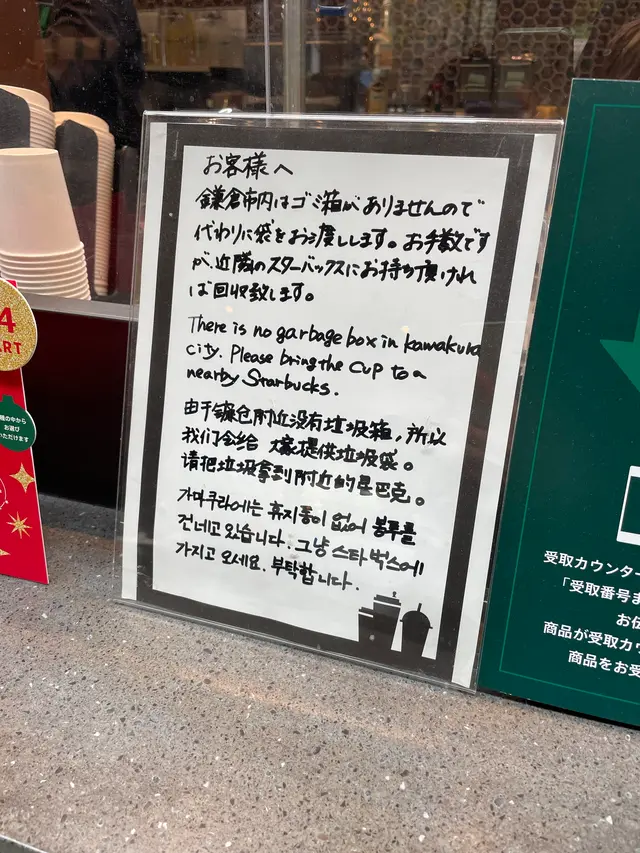 お客様へ
鎌倉市内はゴミ箱がありませんので
代わりに袋をお渡しします。お手数です
が、近隣のスターバックスにお持ち頂けれ
ば回収致します。
There is no garbage box in kamakura
city. Please bring the cup to a
nearby Starbucks.
由于镰仓附近没有垃圾箱，所以
我们会给大家提供垃圾袋。
请把垃圾拿到附近的星巴克。
가마쿠라에는 휴지통이 없어 봉투를
건네고 있습니다. 그냥 스타벅스에
가지고 오세요. 부탁합니다.
4
ART
種の中から
お選び
いただけます
受取カウンター
「受取番号
お伝
商品が受取カウ
商品をお受